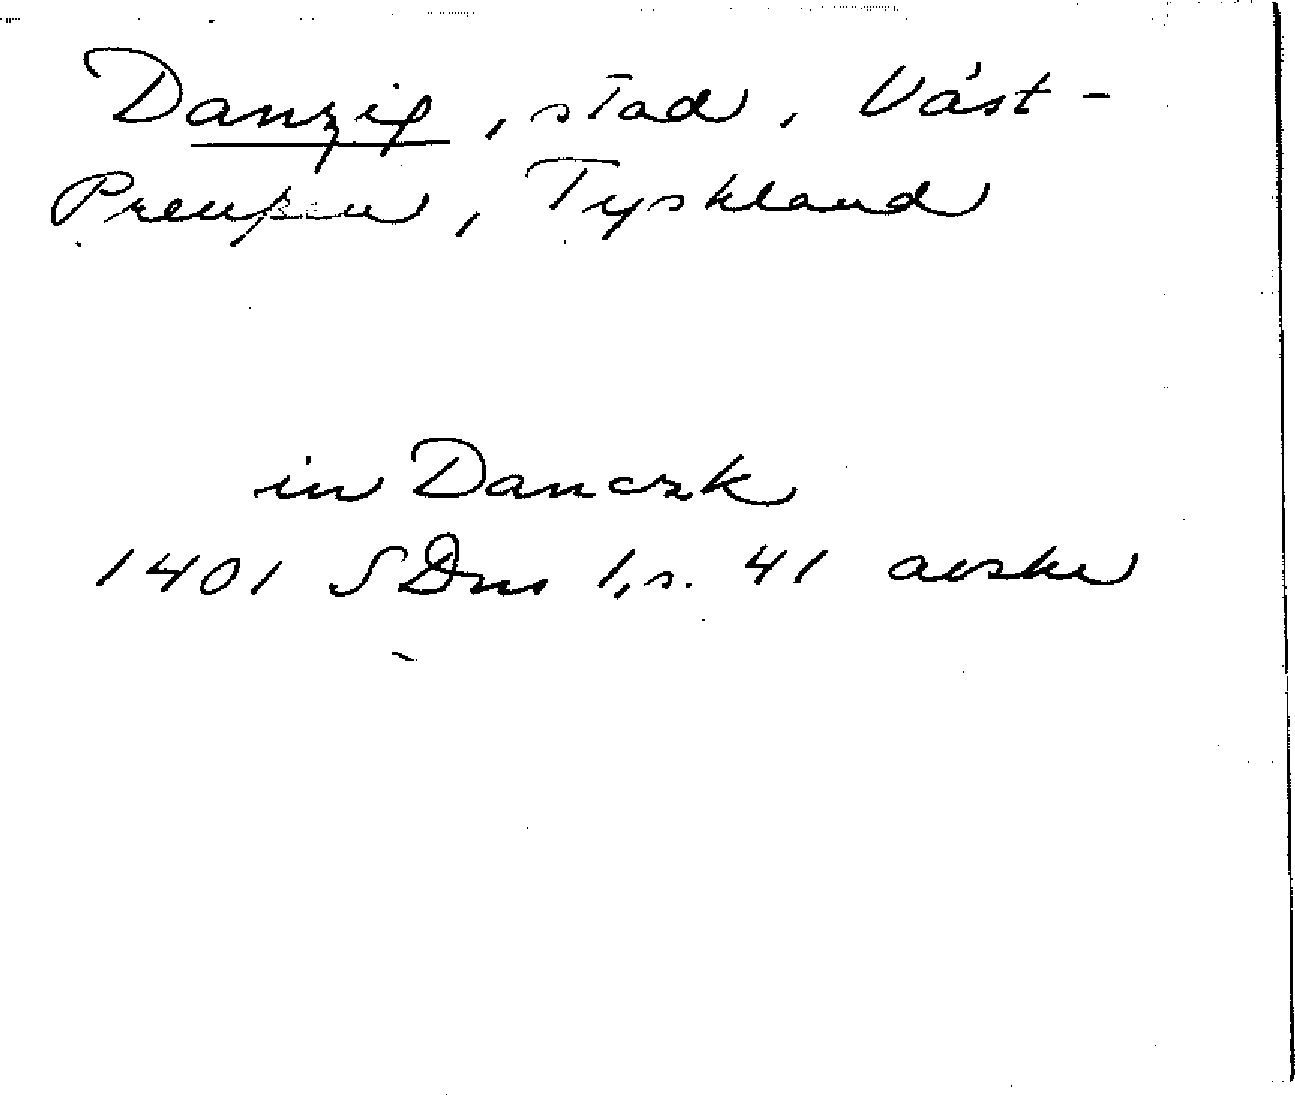 Danzig, stad, Väst-
Preußen, Tyskland
in Danczk
1401 SDns 1, s. 41 avskr